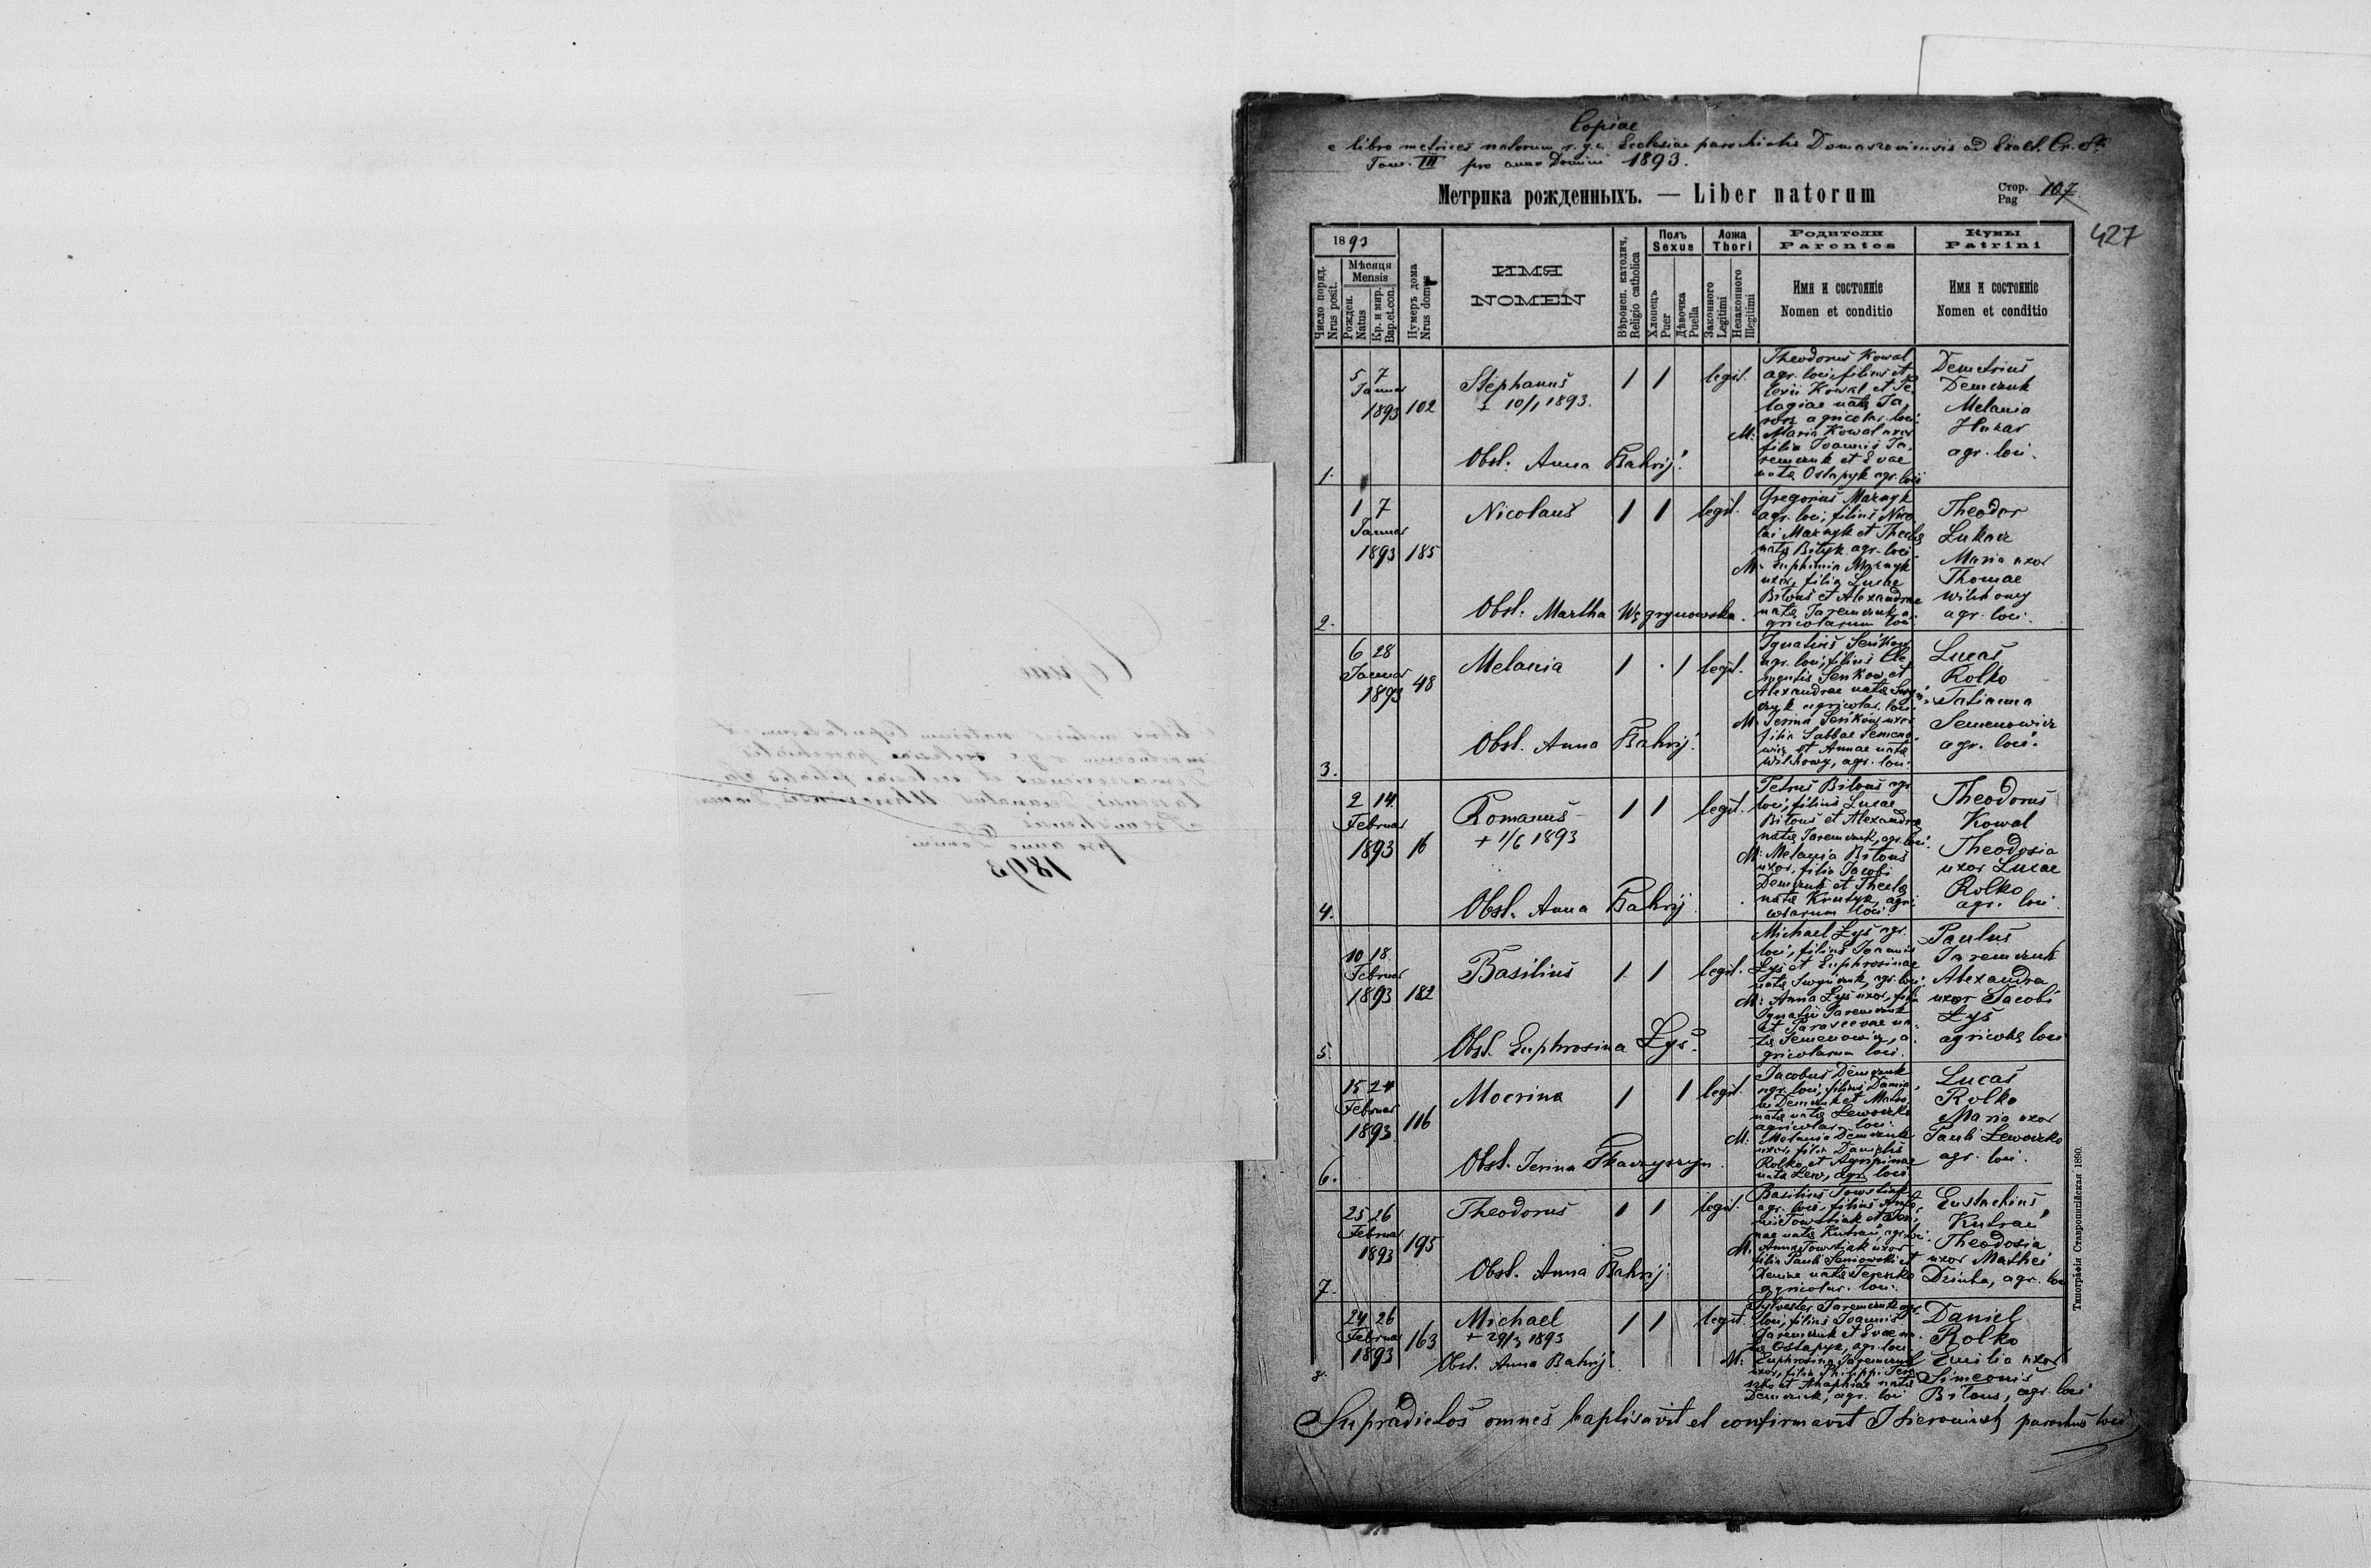 Copiae
e libro metrices natorum r. g. c. Ecclesiae parochialis Domaszoviensis ad Exalt. Cr. Sti
Tom. III pro anno Domini 1893.
Метрика рожденныхъ. — Liber natorum
Стор. Pag 107
427
1893
Число поряд. Nrus posit.
Мѣсяця Mensis
Рожден. Natus
Кр. и мир. Bap.et.con.
Нумеръ дома Nrus domus
ИМЯ
NOMEN
Вѣроисп. католич. Religio catholica
Полъ Sexus
Хлопецъ Puer
Дѣвочка Puella
Ложа Thori
Законного Legitimi
Незаконного Illegitimi
Родители Parentes
Имя и состояніе
Nomen et conditio
Кумы Patrini
Имя и состояніе
Nomen et conditio
1.
5 7
Januar
1893 102
Stephanus
+ 10/1 1893.
Obst. Anna Bahrij.
1 1 legit.
Theodorus Kowal
agr. loci, filius
Kowal et Pe
lagiae natae Ja
agricolar. loci
M: Maria Kowal uxor
filia Joannis Ja
remczuk et Evae
natae Ostapyk agr. loci
Demetrius
Demczuk
Melania
Hukar
agr. loci.
2.
1 7
Januar
1893 185
Nicolaus
Obst. Martha Węgrynowska.
1 1 legit.
Gregorius Maznyk
agr. loci, filius Nico
lai Maznyk et Theclae
natae Bityk agr. loci
M: Euphimia Maznyk
uxor, filia Lucae
Bilous et Alexandrae
natae Jaremczuk a
gricolarum loci
Theodor
Lukacz
Maria uxor
Thomae
Wilchowy
agr. loci.
3.
6 28
Januar
1893 48
Melania
Obst. Anna Bahrij.
1 · 1 legit.
Ignatius Seńkow
agr. loci, filius Cle
mentis Senkow et
Alexandrae natae
agricolar. loci
M: Jerina Seńkow uxor
filia Sabbae Semeno
wicz et Annae natae
Wilchowy, agr. loci.
Lucas
Rolko
Tatianna
Semenowicz
agr. loci.
4.
2 14
Februar
1893 16
Romanus
+ 1/6 1893
Obst. Anna Bahrij
1 1 legit.
Petrus Bilous agr.
loci, filius Lucae
Bilous et Alexandrae
natae Jaremczuk, agr. loci.
M: Melania Bilous
uxor, filia Jacobi
Demczuk et Theclae
natae Krutyk, agri
colarum loci
Theodorus
Kowal
Theodosia
uxor Lucae
Rolko
agr. loci
5.
10 18
Februar
1893 182
Basilius
Obst. Euphrosina Łys.
1 1 legit.
Michael Łys agr.
loci, filius Joannis
Łys et Euphrosinae
natae agr. loci,
M: Anna Łys uxor, filia
Ignatii Jaremczuk
et Parascevae na
tae Semenowicz, a
gricolarum loci.
Paulus
Jaremczuk
Alexandra
uxor Jacobi
Łys
agricolae loci
6.
15 24
Februar
1893 116
Mocrina
Obst. Jerina Tkaczyszyn.
1 1 legit.
Jacobus Demczuk
agr. loci, filius Damia
ni Demczuk et Matro
nae natae Lewoczko
agricolar. loci.
M: Melania Demczuk
uxor, filia Danielis
Rolko et Agripinae
natae Lew, agr. loci
Lucas
Rolko
Maria uxor
Pauli Lewoczko
agr. loci.
7.
25 26
Februar
1893 195
Theodorus
Obst. Anna Bahrij
1 1 legit.
Basilius Towstiak
agr. loci, filius
Towstiak et
natae Kutrań, agr. loci.
M. Anna Towstiak uxor
filia Pauli et
natae Tereszko
agricolar. loci.
Eustachius
Kutrań
Theodosia
uxor Mathei
Dziuba, agr. loci
8.
24 26
Februar
1893 163
Michael
+ 29/3 1893
Obst. Anna Bahrij.
1 1 legit.
Sylvester Jaremczuk agr.
loci, filius Joannis
Jaremczuk et Evae na
tae Ostapyk, agr. loci.
M: Euphrosina Jaremczuk
uxor, filia Philippi Tere
szko et Anaphiae natae
Demczuk, agr. loci
Daniel
Rolko
Emilia uxor
Simeonis
Bilous, agr. loci
Supradictos omnes baptisavit et confirmavit parochus loci
Типографія Ставропигійская 1890.
1893